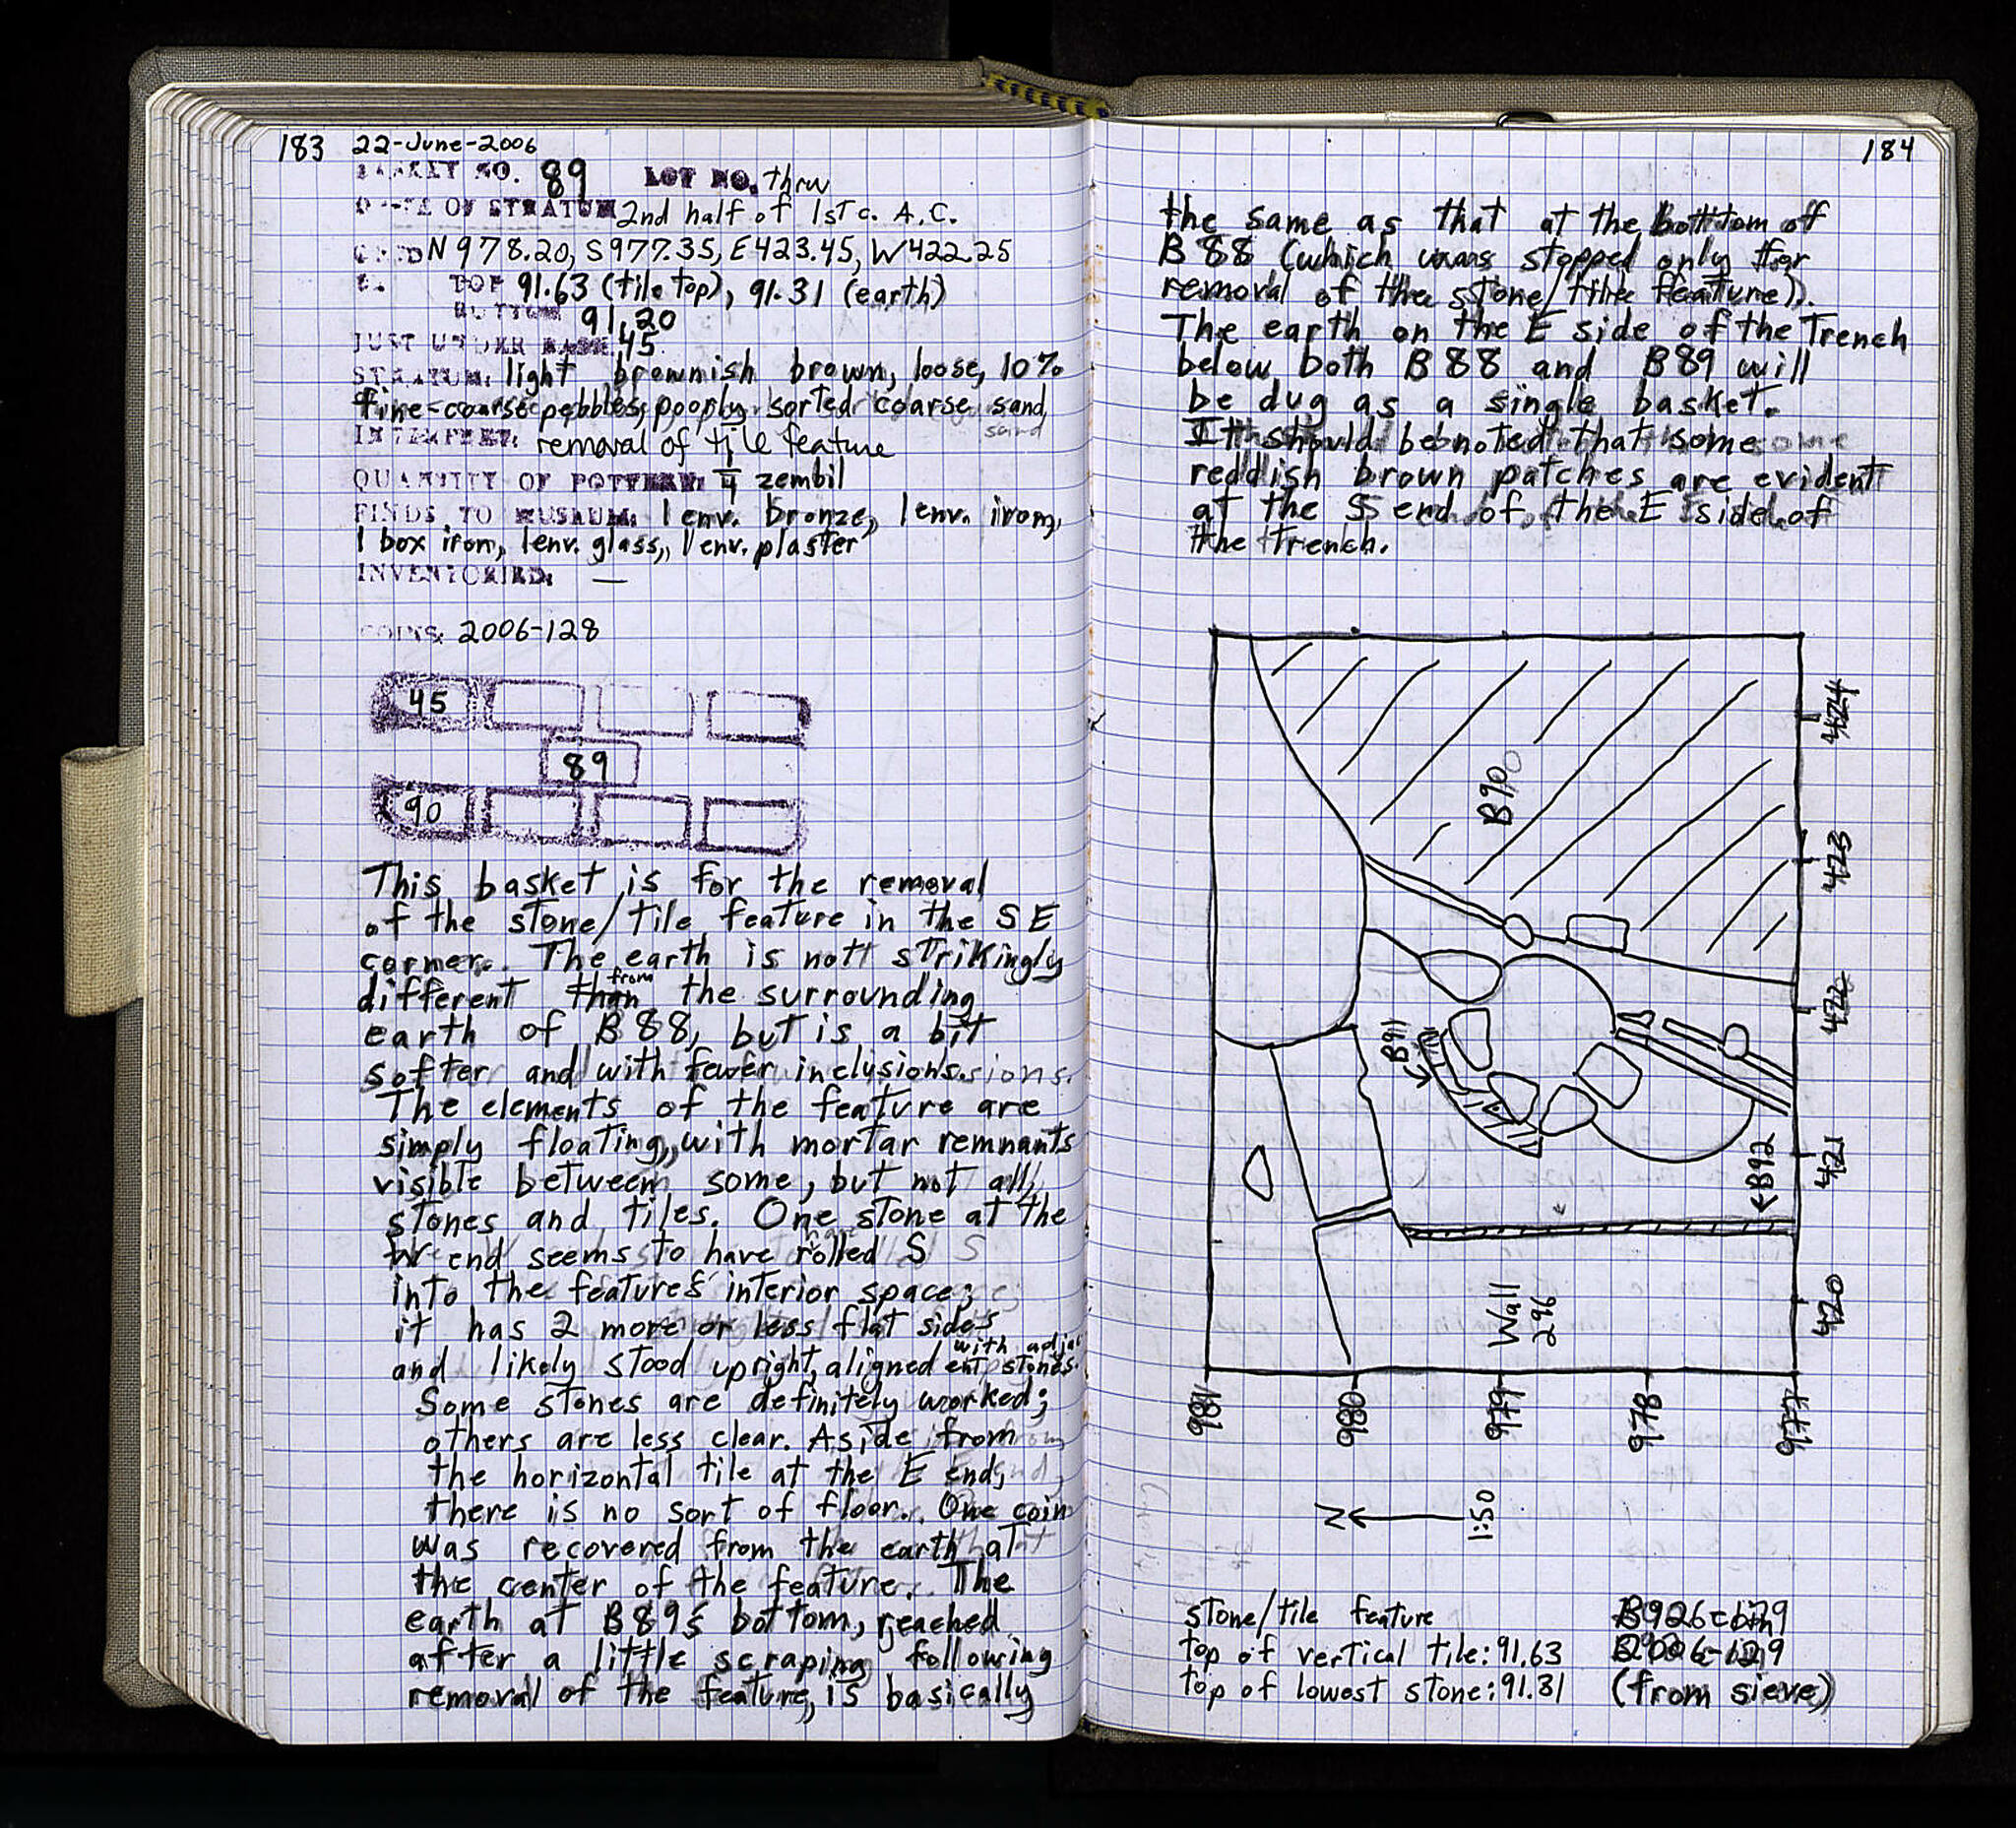 183 22-June-2006
BASKET NO. 89 LOT NO. thru
DATE OF STRATUM 2nd half of 1st c. A.C.
GRID N 978.20, S 977.35, E 423.45, W 422.25
TOP 91.63 (tile top), 91.31 (earth)
BOTTOM 91.20
JUST UNDER BASK. 45
STRATUM: light brownish brown, loose, 10%
fine-coarse pebbles, poorly sorted coarse sand
sand
INTERPRET: removal of tile feature
QUANTITY OF POTTERY: zembil
FINDS TO MUSEUM: 1 env. bronze, 1 env. iron,
1 box iron, 1 env. glass, 1 env. plaster
INVENTORIED: —
COINS: 2006-128
45
89
90
This basket is for the removal
of the stone/tile feature in the SE
corner. The earth is not strikingly
different than from the surrounding
earth of B 88, but is a bit
softer and with fewer inclusions.
The elements of the feature are
simply floating, with mortar remnants
visible between some, but not all,
stones and tiles. One stone at the
W end seems to have rolled S
into the feature's interior space;
it has 2 more or less flat sides
and likely stood upright, aligned with adjacent stones.
Some stones are definitely worked;
others are less clear. Aside from
the horizontal tile at the E end,
there is no sort of floor. One coin
was recovered from the earth at
the center of the feature. The
earth at B89's bottom, reached
after a little scraping following
removal of the feature, is basically
184
the same as that at the bottom of
B 88 (which was stopped only for
removal of the stone/tile feature).
The earth on the E side of the Trench
below both B 88 and B89 will
be dug as a single basket.
It should be noted that some
reddish brown patches are evident
at the S end of the E side of
the Trench.
B90
B91
B92
Wall
296
424
423
422
421
420
981
980
979
978
977
N
1:50
stone/tile feature
top of vertical tile: 91.63
top of lowest stone: 91.31
(from sieve)